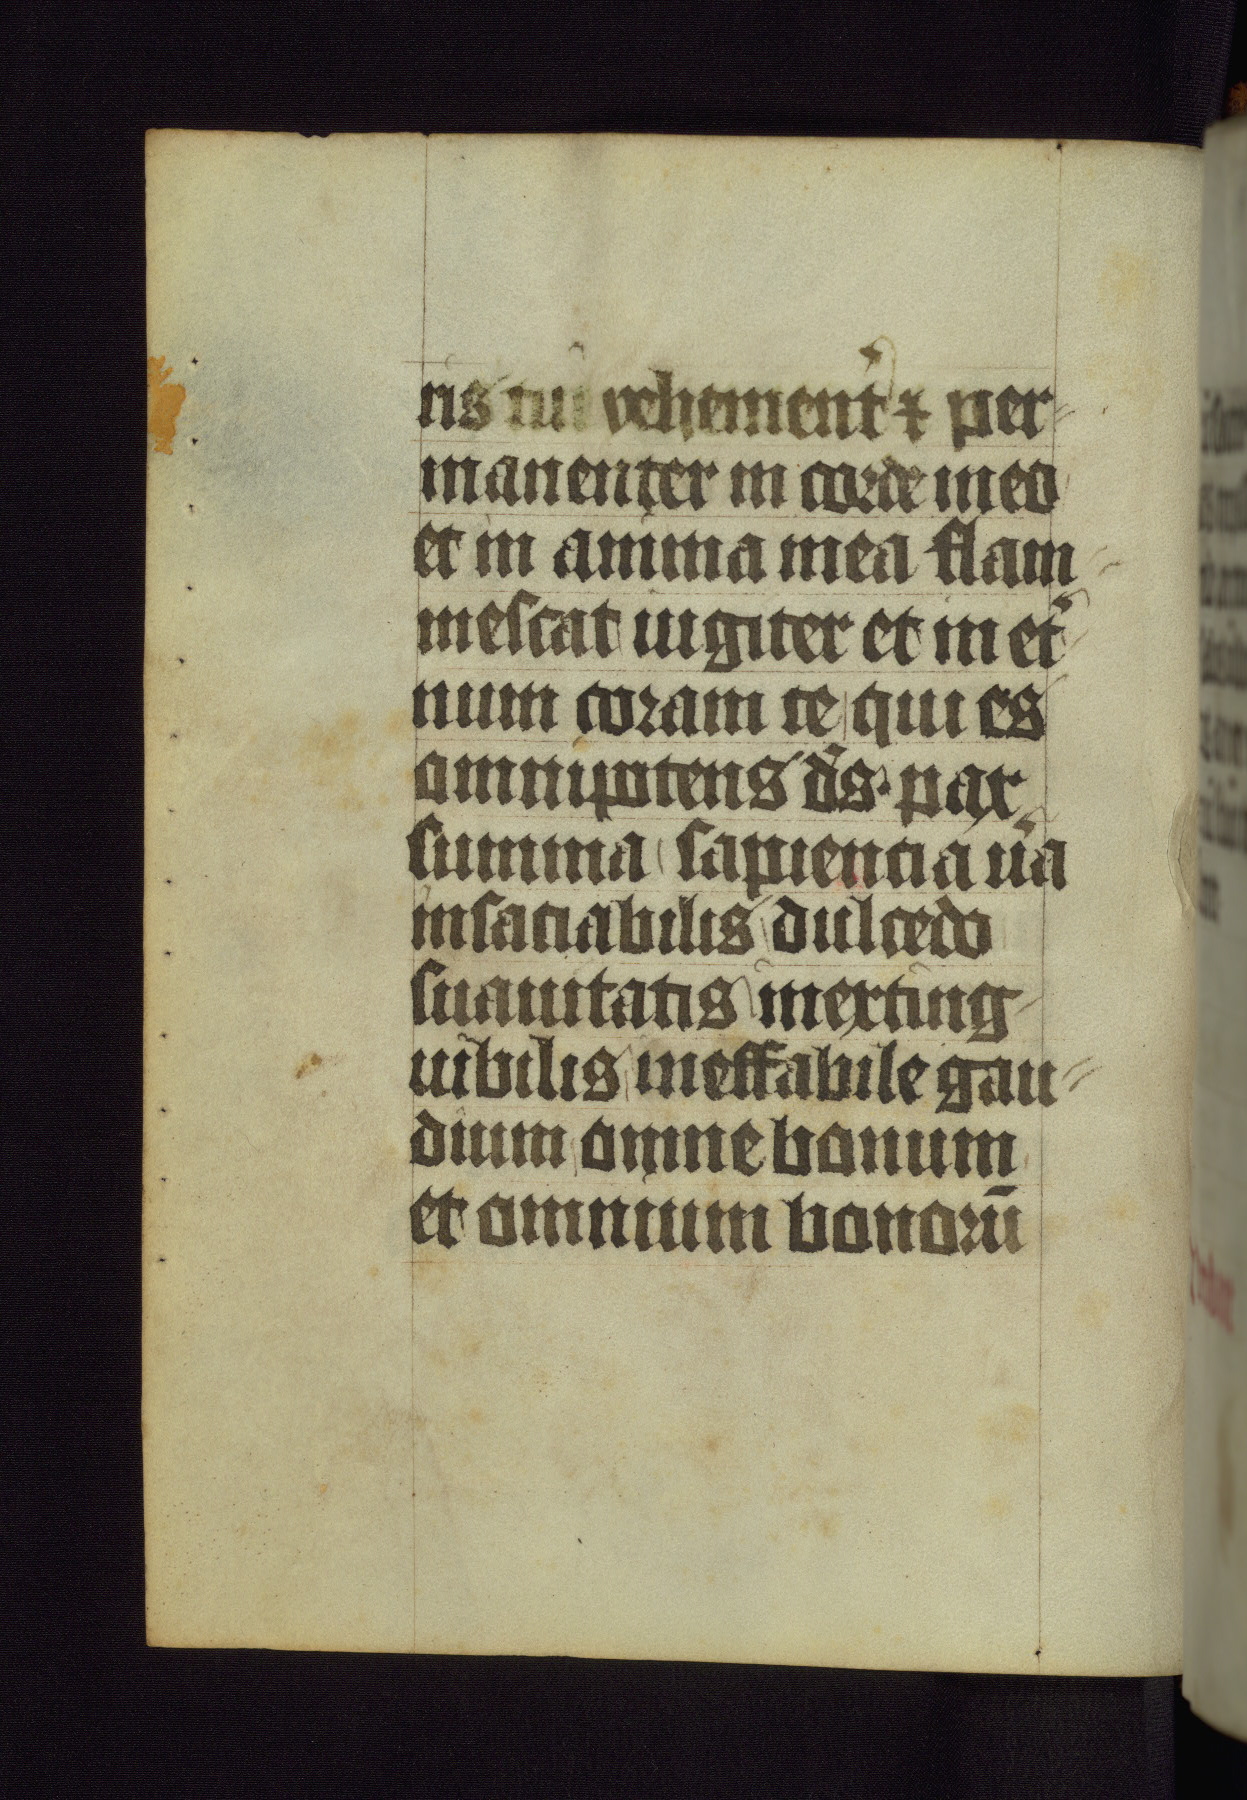 ris tui vehement̉ ⁊ per-
manenter in corde meo
et in anima mea flam-
mescat iugiter et in et̉-
num coram te qui es
omnipotens d̄s. pax
summa sapiencia ūa
insaciabilis dulcedo
suauitatis inexting-
uibilis ineffabile gau-
dium omne bonum
et omnium bonorū